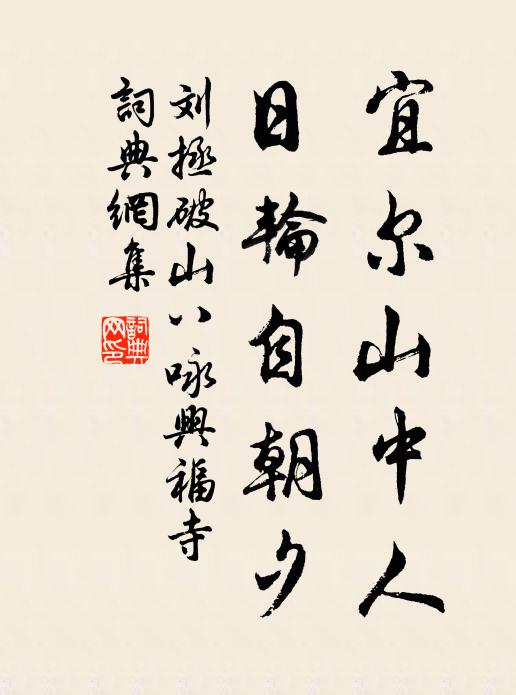 宜尔山中人
日輪自朝夕
刘拯破山八咏興福寺
詞典網集
詞典网印